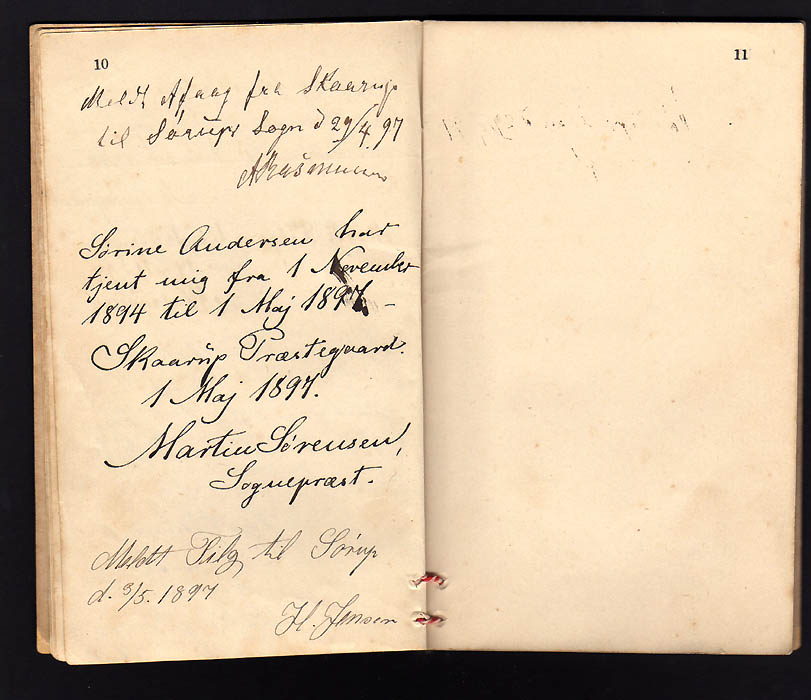 10
Meldt Afgag fra Skaarup
til Sørups Sogn d 29/4 97
ARasmussen
Sørine Andersen har
tjent mig fra 1 November
1894 til 1 Maj 1897. –
Skaarup Præstegaard.
1 Maj 1897.
Martin Sørensen,
Sognepræst.
Meldt Tilg til Sørup
d. 3/5. 1897
H. Jensen
11